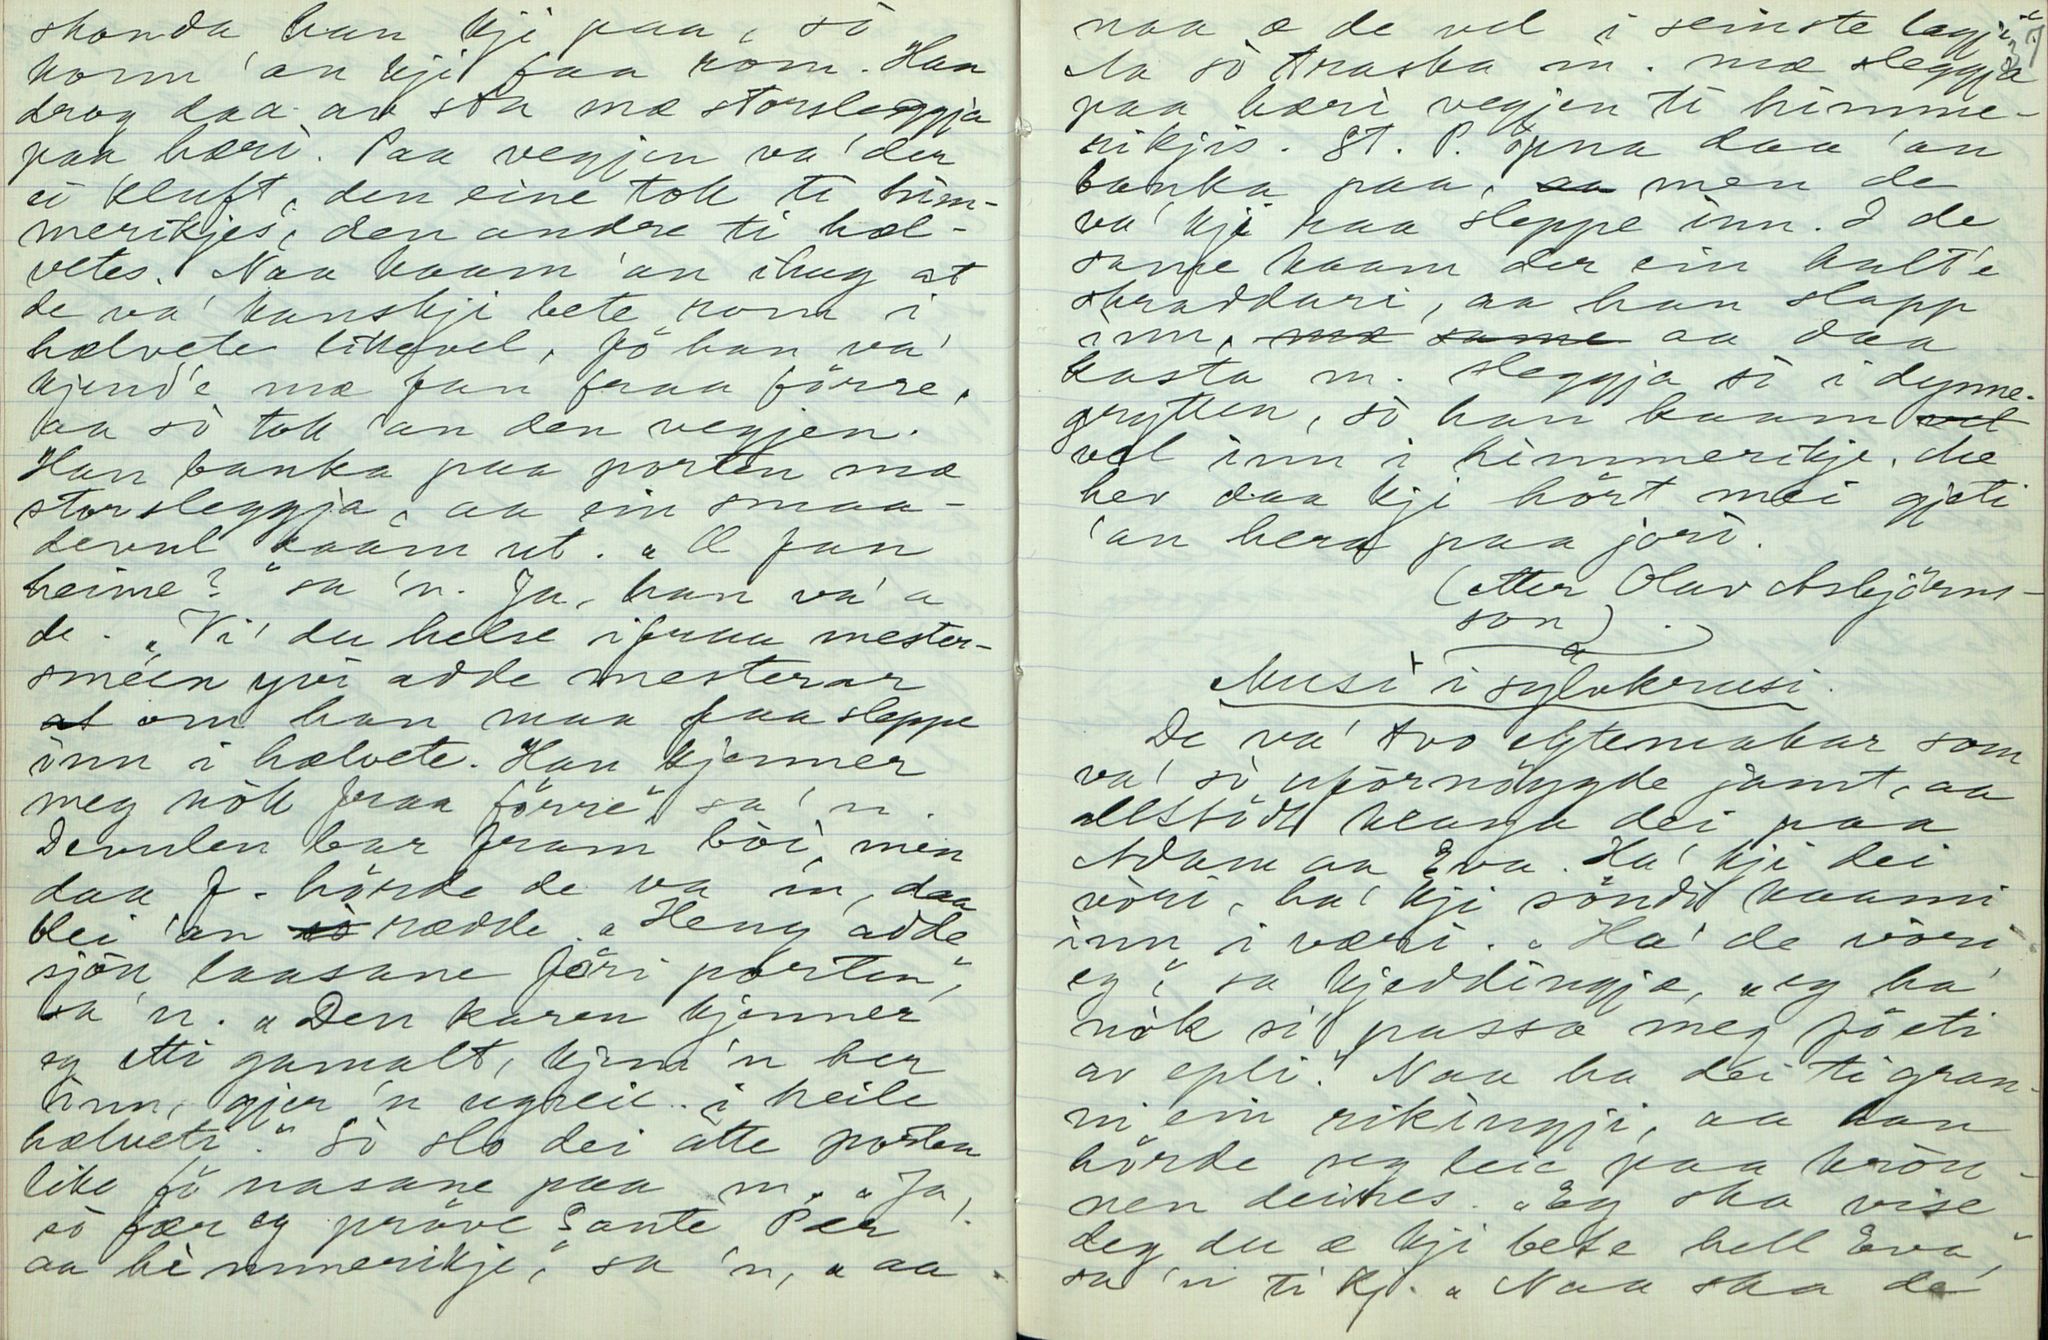 skonda han kji paa, sò
komm 'an kji faa rom. Han
drog daa av sta mæ storsleggja
paa hæri. Paa vegjen va' der
ei kluft, den eine tok ti him-
merikjes, den andre ti hæl-
vetes. Naa kaam 'an ihug at
de va' kanskji bete rom i
hælvete likevel, fö han va'
kjend'e mæ fan fraa förre,
aa sò tok 'an den vegjen.
Han banka paa porten mæ
storsleggja, aa ein smaa-
devul kaam ut. „Æ fan
heime?" sa 'n. Ja, han va' a
de. „Vi' du helse ifraa mester-
sméen yvi adde mesterar
at om han maa faa sleppe
inn i hælvete. Han kjenner
meg nòk fraa förre" sa' n.
Devulen bar fram bòi, men
daa f. hörde de va 'n, daa
blei 'an sò rædde. „Heng adde
sjöu laasane föri porten",
sa 'n. „Den karen kjenner
eg etti gamalt, kjem 'n her
inn, gjer 'n ugreie i heile
hælveti." Sò slo dei atte porten
like fö nasane paa m. „Ja,
sò fær eg pröve Sante Per
aa himmerikje," sa 'n, „aa
naa æ de vel i seinste lagji."
Aa sò traska m. mæ sleggja
paa hæri vegjen ti himme-
rikjis. St. P. òpna daa 'an
banka paa, aa men de
va' kji naa sleppe inn. I de
same kaam der ein halt'e
skraddari, aa han slapp
inn, mæ same aa daa
kasta m. sleggja si i dynne-
grytten, sò han kaam vel
vel inn i himmerikje. Me
hev daa kji hört mei gjeti
'an hera paa jori.
(etter Olav Asbjörns-
son).
Musi i sylvkrusi.
De va' tvo egtemakar som
va' sò uförnöygde jamt, aa
allstödt klaga dei paa
Adam aa Eva. Ha' kji dei
vòri, ha' kji söndi kaami
inn i væri. „Ha' de vòri
eg", sa kjeddingje, „eg ha'
nòk si' passa meg fö eti
av epli." Naa ha dei ti gran-
ni ein rikingji, aa han
hörde seg leie paa krön-
nen deires. „Eg ska vise
deg du æ kji bete hell Eva,"
sa 'n ti kj. „Naa ska de'